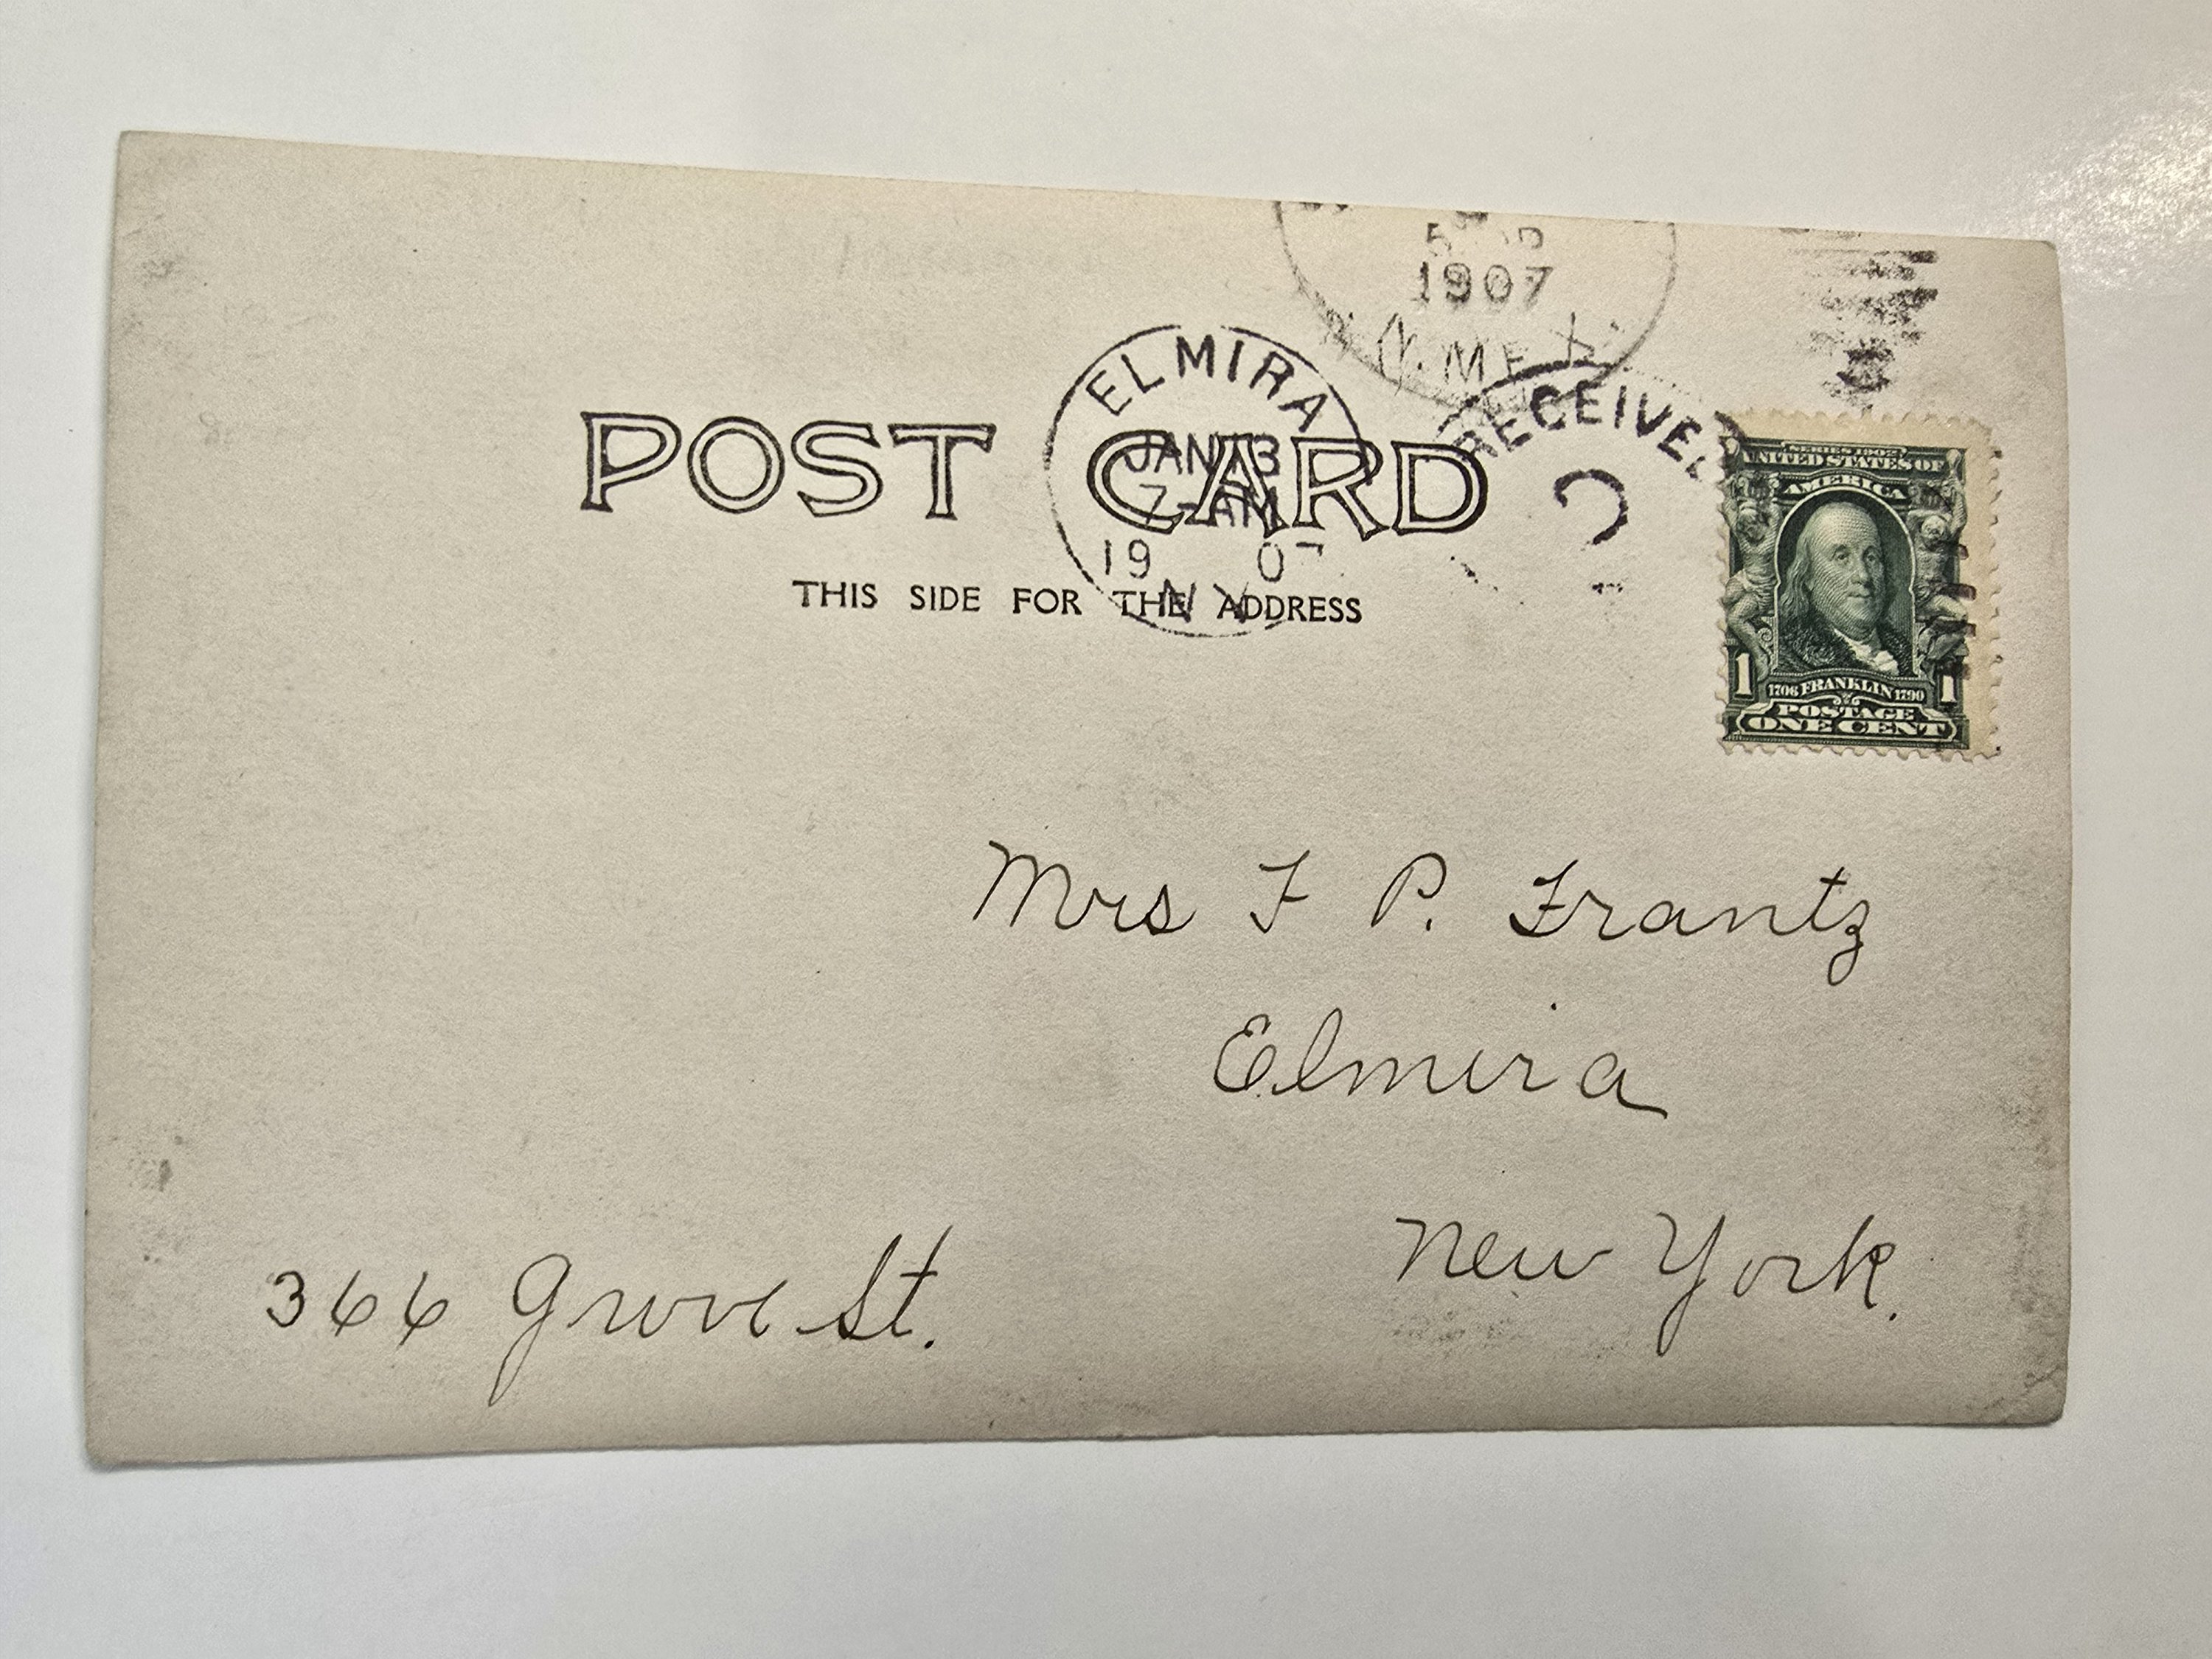 1907
N. MEX.
ELMIRA
RECEIVED
POST CARD
JAN 13
7-AM
19 07
N Y
THIS SIDE FOR THE ADDRESS
SERIES 1902
UNITED STATES OF
AMERICA
1 1
1706 FRANKLIN 1790
POSTAGE
ONE CENT
Mrs F P. Frantz
Elmira
New York.
366 Grove St.